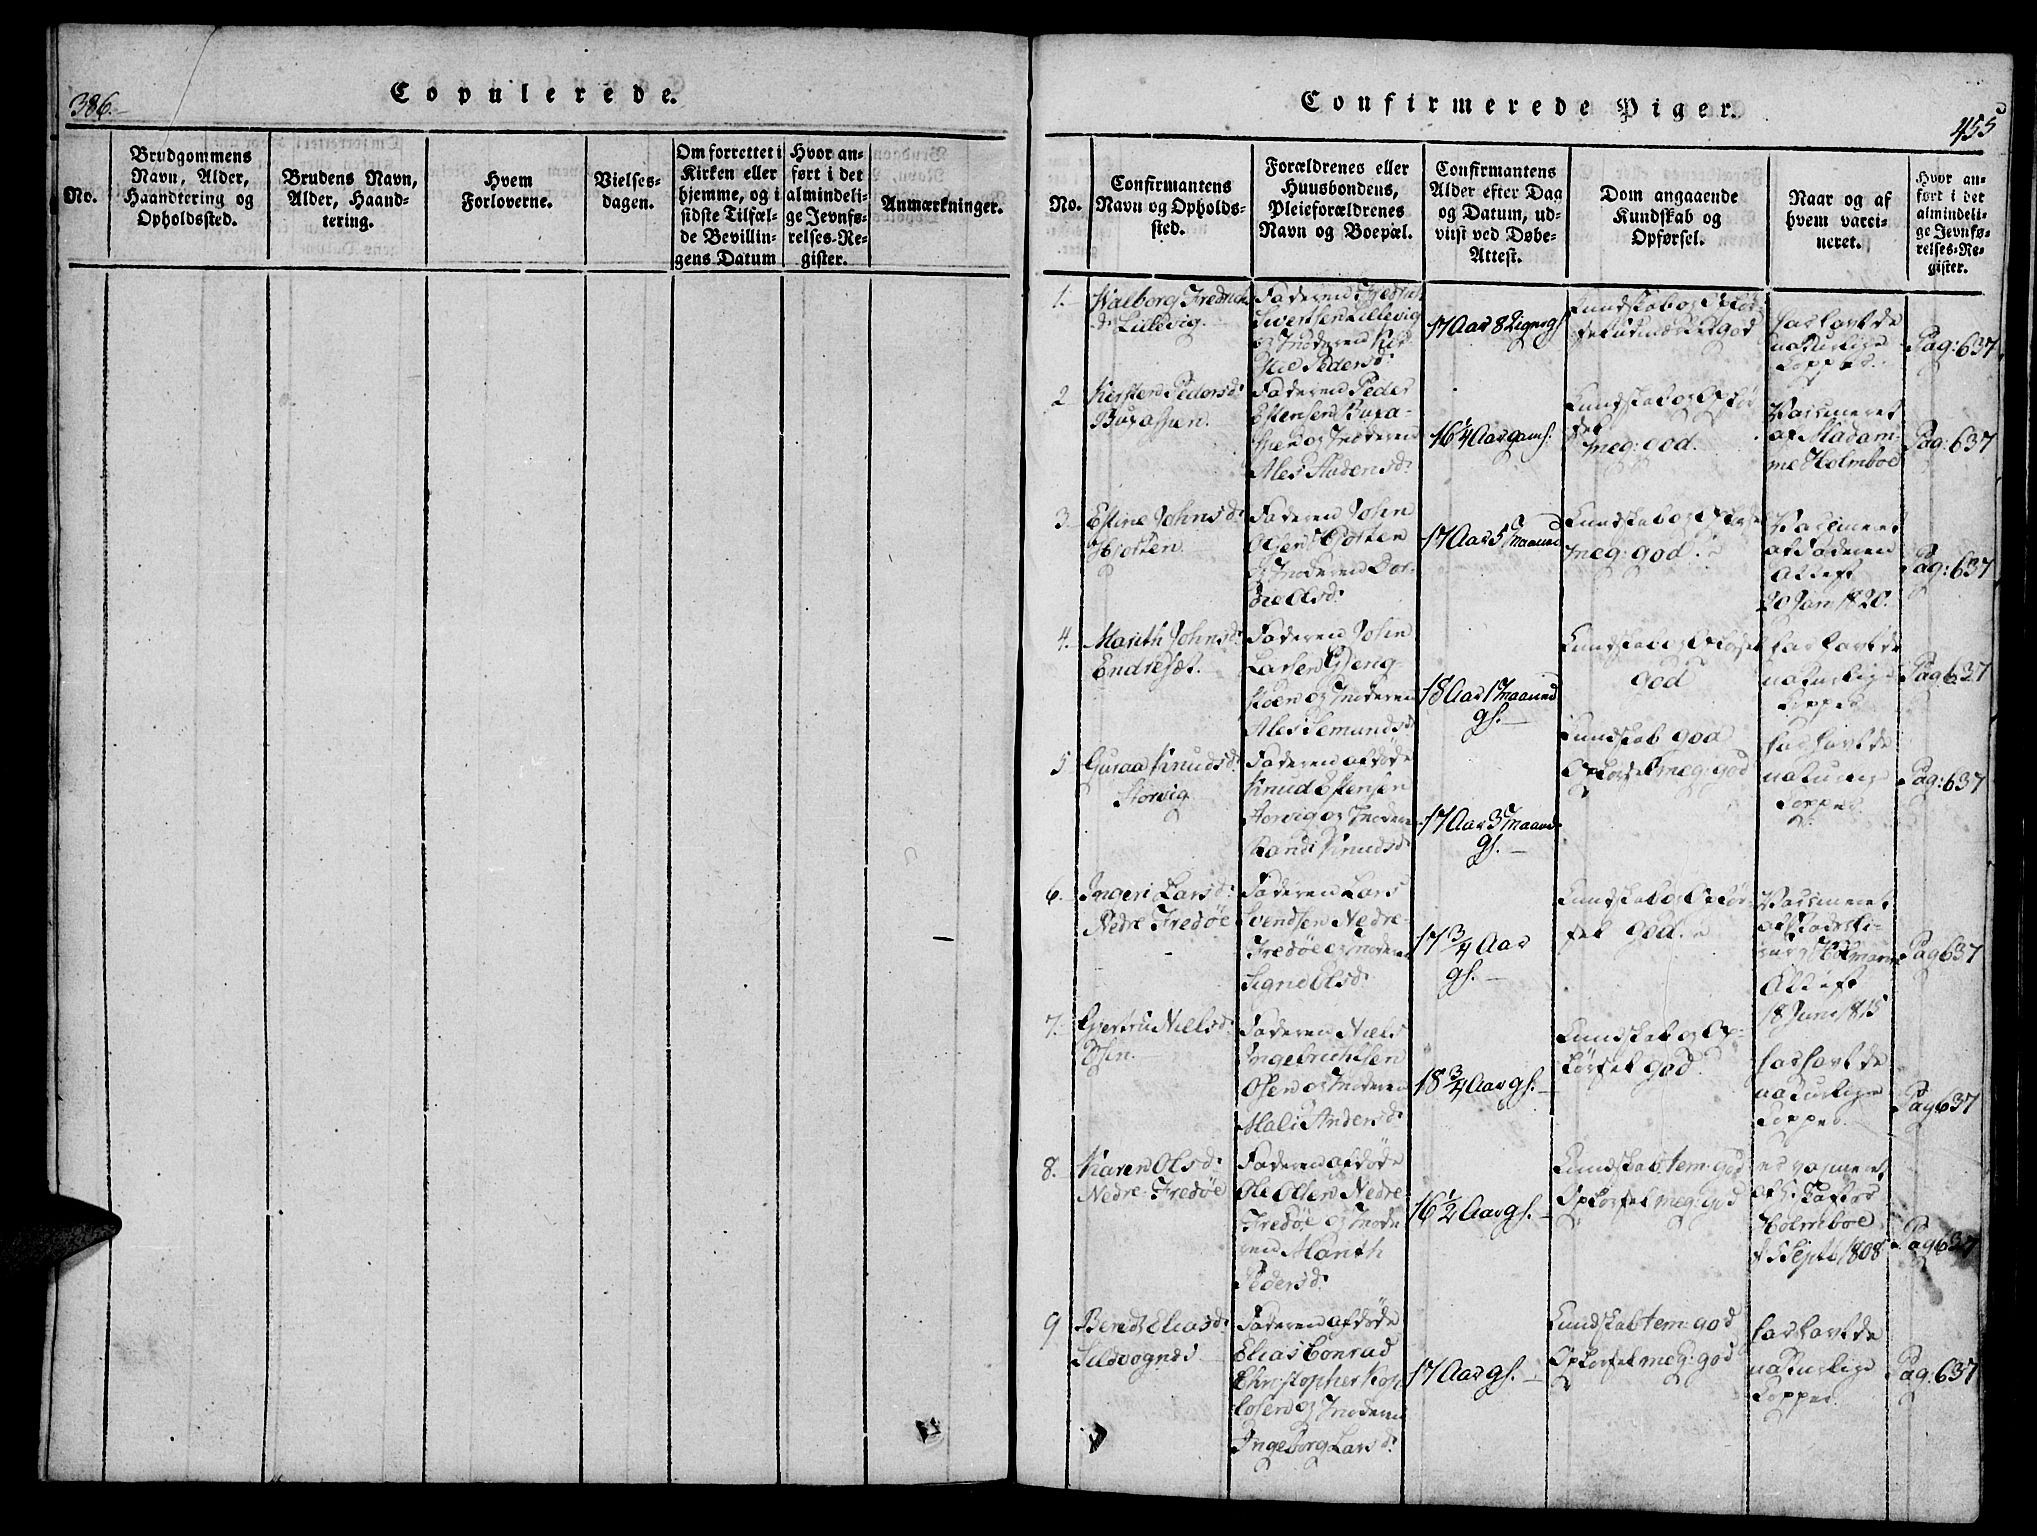 386.
Copulerede.
No.
Brudgommens
Navn, Alder,
Haandtering og
Opholdssted.
Brudens Navn,
Alder, Haand-
tering.
Hvem
Forloverne.
Vielses-
dagen.
Om forrettet i
Kirken eller
hjemme, og i
sidste Tilfæl-
de Bevillin-
gens Datum
Hvor an-
ført i det
almindeli-
ge Jevnfø-
relses-Re-
gister.
Anmærkninger.
Confirmerede Piger.
455
No.
Confirmantens
Navn og Opholds-
sted.
Forældrenes eller
Huusbondens,
Pleieforældrenes
Navn og Boepæl.
Confirmantens
Alder efter Dag
og Datum, ud-
viist ved Døbe-
Attest.
Dom angaaende
Kundskab og
Opførsel.
Naar og af
hvem vacci-
neret.
Hvor an-
ført i det
almindeli-
ge Jevnfø-
relses-Re-
gister.
1.
Valborg Fredrich
d: Lillevig.
Faderen Fredrich
Swensen Lillevig
og Moderen Kir-
stie Pedersd:
17 Aar
Kundskab og Opfør-
sel god
har havt de
naturlige
Kopper.
Pag: 637
2
Kirsten Pedersd:
Faderen Peder
Estensen
og Moderen
Ales
16 1/4 Aar gaml:
Kundskab og Opfør
sel
meg: god.
Vacineret
af Madam-
me Holmboe
Pag: 637
3.
Estine Johnsd:
Hjorten
Faderen John
Olsen Hjorten
og Moderen Dor-
the Olsd:
17 Aar 5 Maaned
Kundskab og Opførsel
meg: god.
Vacineret
af Faderen
Attest
20 Jan 1820.
Pag: 637
4.
Marith Johnsd:
Endresæt.
Faderen John
Larsen
og Moderen
Ales Semundsd
18 Aar 1 Maaned
gl.
Kundskab og Opførsel
god
har havt de
naturlige
Kopper
Pag 637
5
Guroa Knudsd:
Storvig
Faderen afdøde
Knud Estensen
Storvig og Moderen
Randi Knudsd:
17 Aar 3 Maaned
gl.
Kundskab god
Opførsel meg: god
har havt de
naturlige
Kopper
Pag: 637
6.
Ingeri Larsd:
Nedre Fredøe
Faderen Lars
Svendsen Nedre-
Fredøe og Moderen
Signe Olsd:
17 3/4 Aar
gl.
Kundskab og Opfør-
sel god.
Vacineret
af
Attest
18 Juni 1815
Pag 637
7.
Gjertru Nielsd:
Osen.
Faderen Niels
Ingebrichtsen
Osen og Moderen
Mali Andersd:
18 3/4 Aar gl.
Kundskab og Op-
førsel god.
har havt de
naturlige
Kopper.
Pag 637
8.
Karen Olsd:
Nedre Fredøe
Faderen afdøde
Ole Olsen Nedre-
Fredøe og Mode
ren Marith
Pedersd:
16 1/2 Aar gl.
Kundskab tem: god
Opførsel meg: god
er vacineret
af
Holmboe
Sept 1808
Pag 637
9
Elias d:
Sildvognes
Faderen afdøde
Elias Conrad
Christopher
og Moderen
Ingeborg Larsd:
17 Aar gl.
Kundskab tem: god
Opførsel meg: god
har havt de
naturlige
Kopper.
Pag: 637